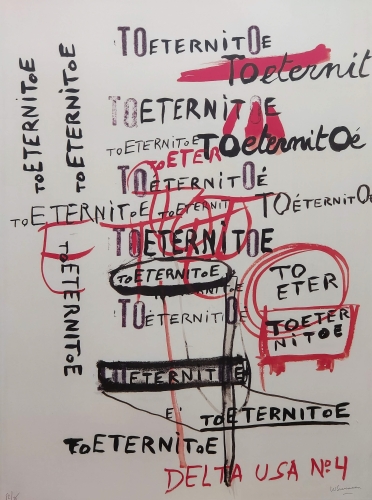 TOETERNITOE
TOeternit
TOETERNITOE
TOETERNITOE
TOETERNITOE
TOETERNITOE
TOeternitOé
TOETER
TOETERNITOÉ
TOETERNITOE
TOETERNIT
TOÉTERNITOE
TOETERNITOE
TOETERNITOE
TO
ETER
TOETERNITOE
TOETERNITOE
TOETER
NITOE
TOETERNITOE
TOETERNITOE
E
TOETERNITOE
TOETERNITOE
DELTA USA Nº4